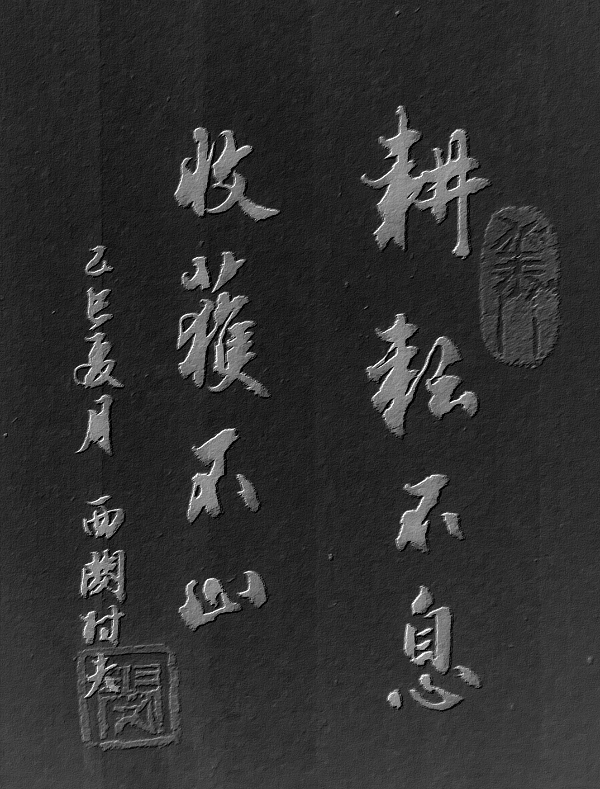 耕耘不息
收獲不止
乙巳夏月 西關村